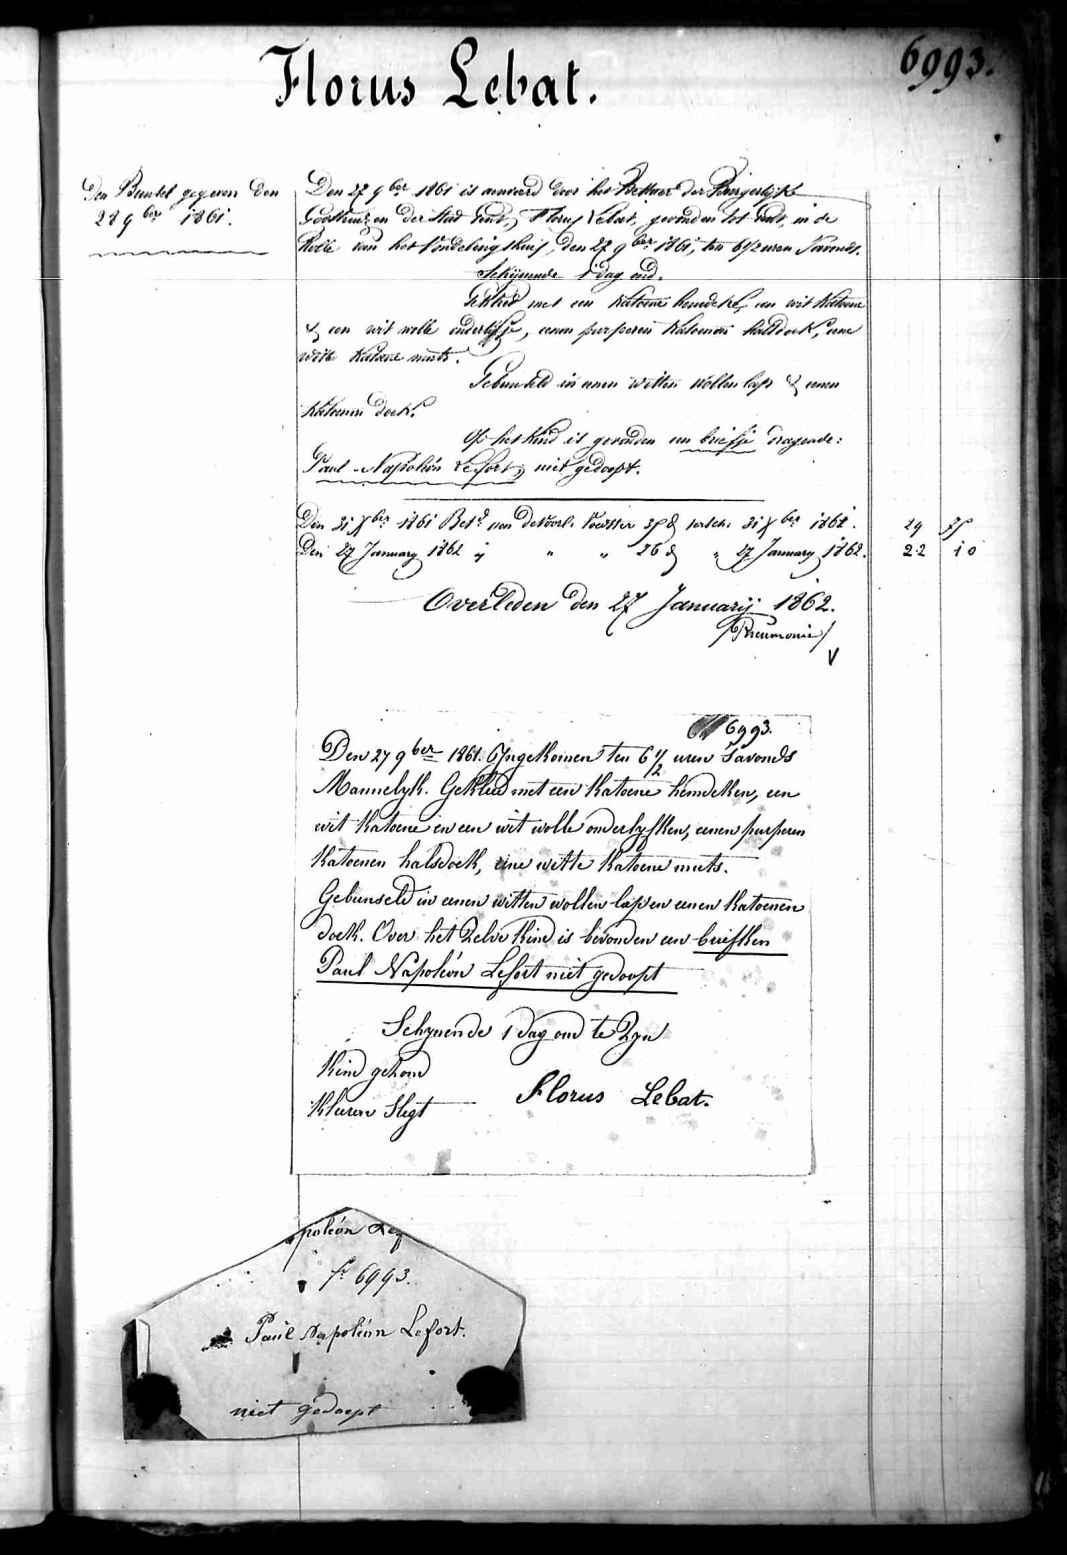 Florus Lebat.
6993.
Den Bundel gegeven Den
28 9ber 1861.
Den 27 9ber 1861 is aenveerd door het Bestuer der Burgerlyke
Godshuizen der Stad Gend, Florus Lebat, gevonden tot Gend, in de
Rolle van het Vondelingshuis, den 27 9ber 1861, ten 6 1/2 uren 's avonds.
Schijnende 1 dag oud.
Gekleed met een katoene hemdeke, een wit katoene
& een wit wolle onderlyfje, eenen purperen katoenen halsdoek, eene
witte katoene muts.
Gebunseld in eenen witten wollen lap & eenen
katoenen doek.
Op het kind is gevonden een briefje dragende:
Paul Napoléon Lefort, niet gedoopt.
Den 31 Xber 1861 Betd aan de Voorl. Voedster 35 d versch: 31 Xber 1861. 29 75
Den 27 January 1862 ij " " 26 d " 27 January 1862. 22 10
Overleden den 27 Januarij 1862.
/Pneumonie/
6993.
Den 27 9ber 1861. Ingekomen ten 6 1/2 uren Savonds
Mannelyk. Gekleed met een katoene hemdeken, een
wit katoene en een wit wolle onderlyfken, eenen purperen
katoenen halsdoek, eine witte katoene muts.
Gebunseld in eenen witten wollen lap en eenen katoenen
doek. Over het zelve kind is bevonden een briefken
Paul Napoléon Lefort niet gedoopt
Schynende 1 dag oud te zyn
Kind gezond
Kleeren Slegt
Florus Lebat.
poléon Lef
fo 6993.
Paul Napoléon Lefort.
niet gedoopt